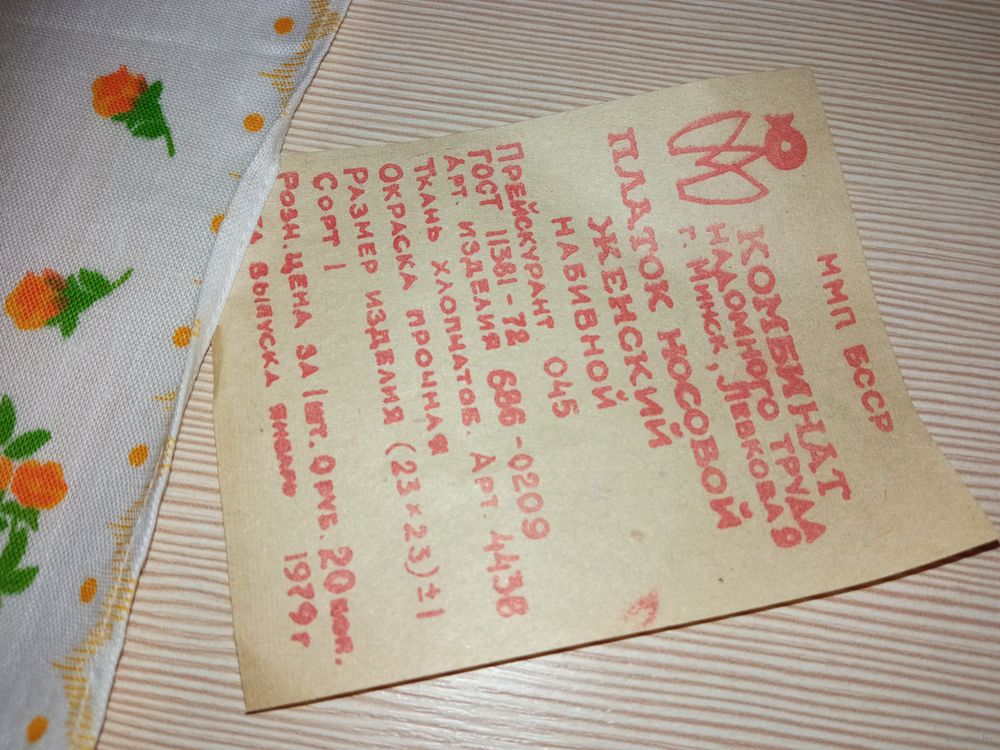 ММП БССР
КОМБИНАТ
НАДОМНОГО ТРУДА
г. Минск, Левкова 9
ПЛАТОК НОСОВОЙ
ЖЕНСКИЙ
НАБИВНОЙ
ПРЕЙСКУРАНТ 045
ГОСТ 11381-72
АРТ. ИЗДЕЛИЯ 686-0209
ТКАНЬ ХЛОПЧАТОБ. АРТ. 4438
ОКРАСКА ПРОЧНАЯ
РАЗМЕР ИЗДЕЛИЯ (23×23)±1
СОРТ 1
РОЗН. ЦЕНА ЗА 1 ШТ. 0 РУБ. 20 КОП.
ВЫПУСКА ЯНВАРЬ 1979 г